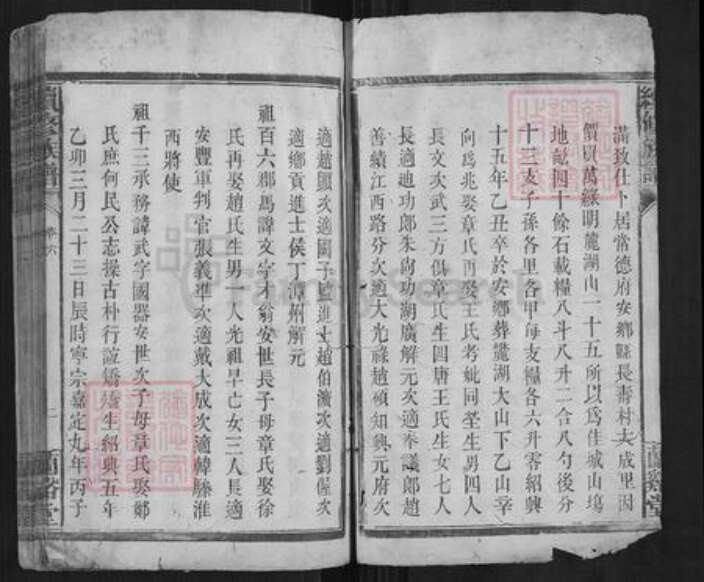 滿致仕卜居當德府安鄉縣長壽村大成里因
價買萬綠明龍湖山一十五所以爲佳城山塲
地畝四十餘石載糧八斗八升二合八勺後分
十三支子孫各里各甲每支糧各六升零紹興
十五年乙丑卒於安鄉葬龍湖大山下乙山辛
向爲兆娶章氏再娶王氏考妣同塋生男四人
長文次武三方俱章氏生四唐王氏生女七人
長適迪功郎朱向功湖廣解元次適奉議郎趙
善績江西路分次適大光祿趙碩知興元府次
適趙顯次適國子監進士趙伯瀛次適劉偓次
適鄉貢進士侯丁潭州解元
祖百六郡馬諱文字才翁安世長子母章氏娶徐
氏再娶趙氏生男一人光祖早亡女三人長適
安豐軍判官張義準次適戴大成次適韓滕淮
西將使
祖千三承務諱武字國器安世次子母章氏娶鄭
氏庶何民公志操古朴行誼矯矯生紹興五年
乙卯三月二十三日辰時寧宗嘉定九年丙子
續修族譜
卷六
二
蘭谿堂